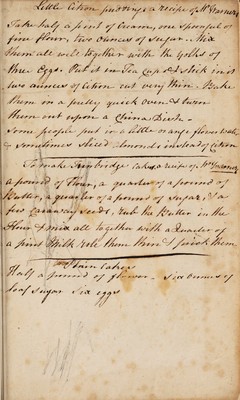 Little Citron puddings a recipe of Mrs
Take half a pint of Cream, one spoonful of
fine flour, two ounces of Sugar. Mix
them all well together with the yolks of
three Eggs. Put it in Tea Cups & stick in it
two ounces of Citron cut very thin. Bake
them in a pretty quick oven & turn
them out upon a China Dish.
Some people put in a little orange flower water
& sometimes sliced almonds instead of citron
To make Tunbridge Cakes a recipe of Mrs
a pound of Flour, a quarter of a pound of
Butter, a quarter of a pound of Sugar, & a
few Caraway Seeds, rub the Butter in the
Flour & mix all together with a Quarter of
a pint Milk role them thin & prick them
Plain Cakes
Half a pound of flower - Six ounces of
loaf Sugar Six eggs